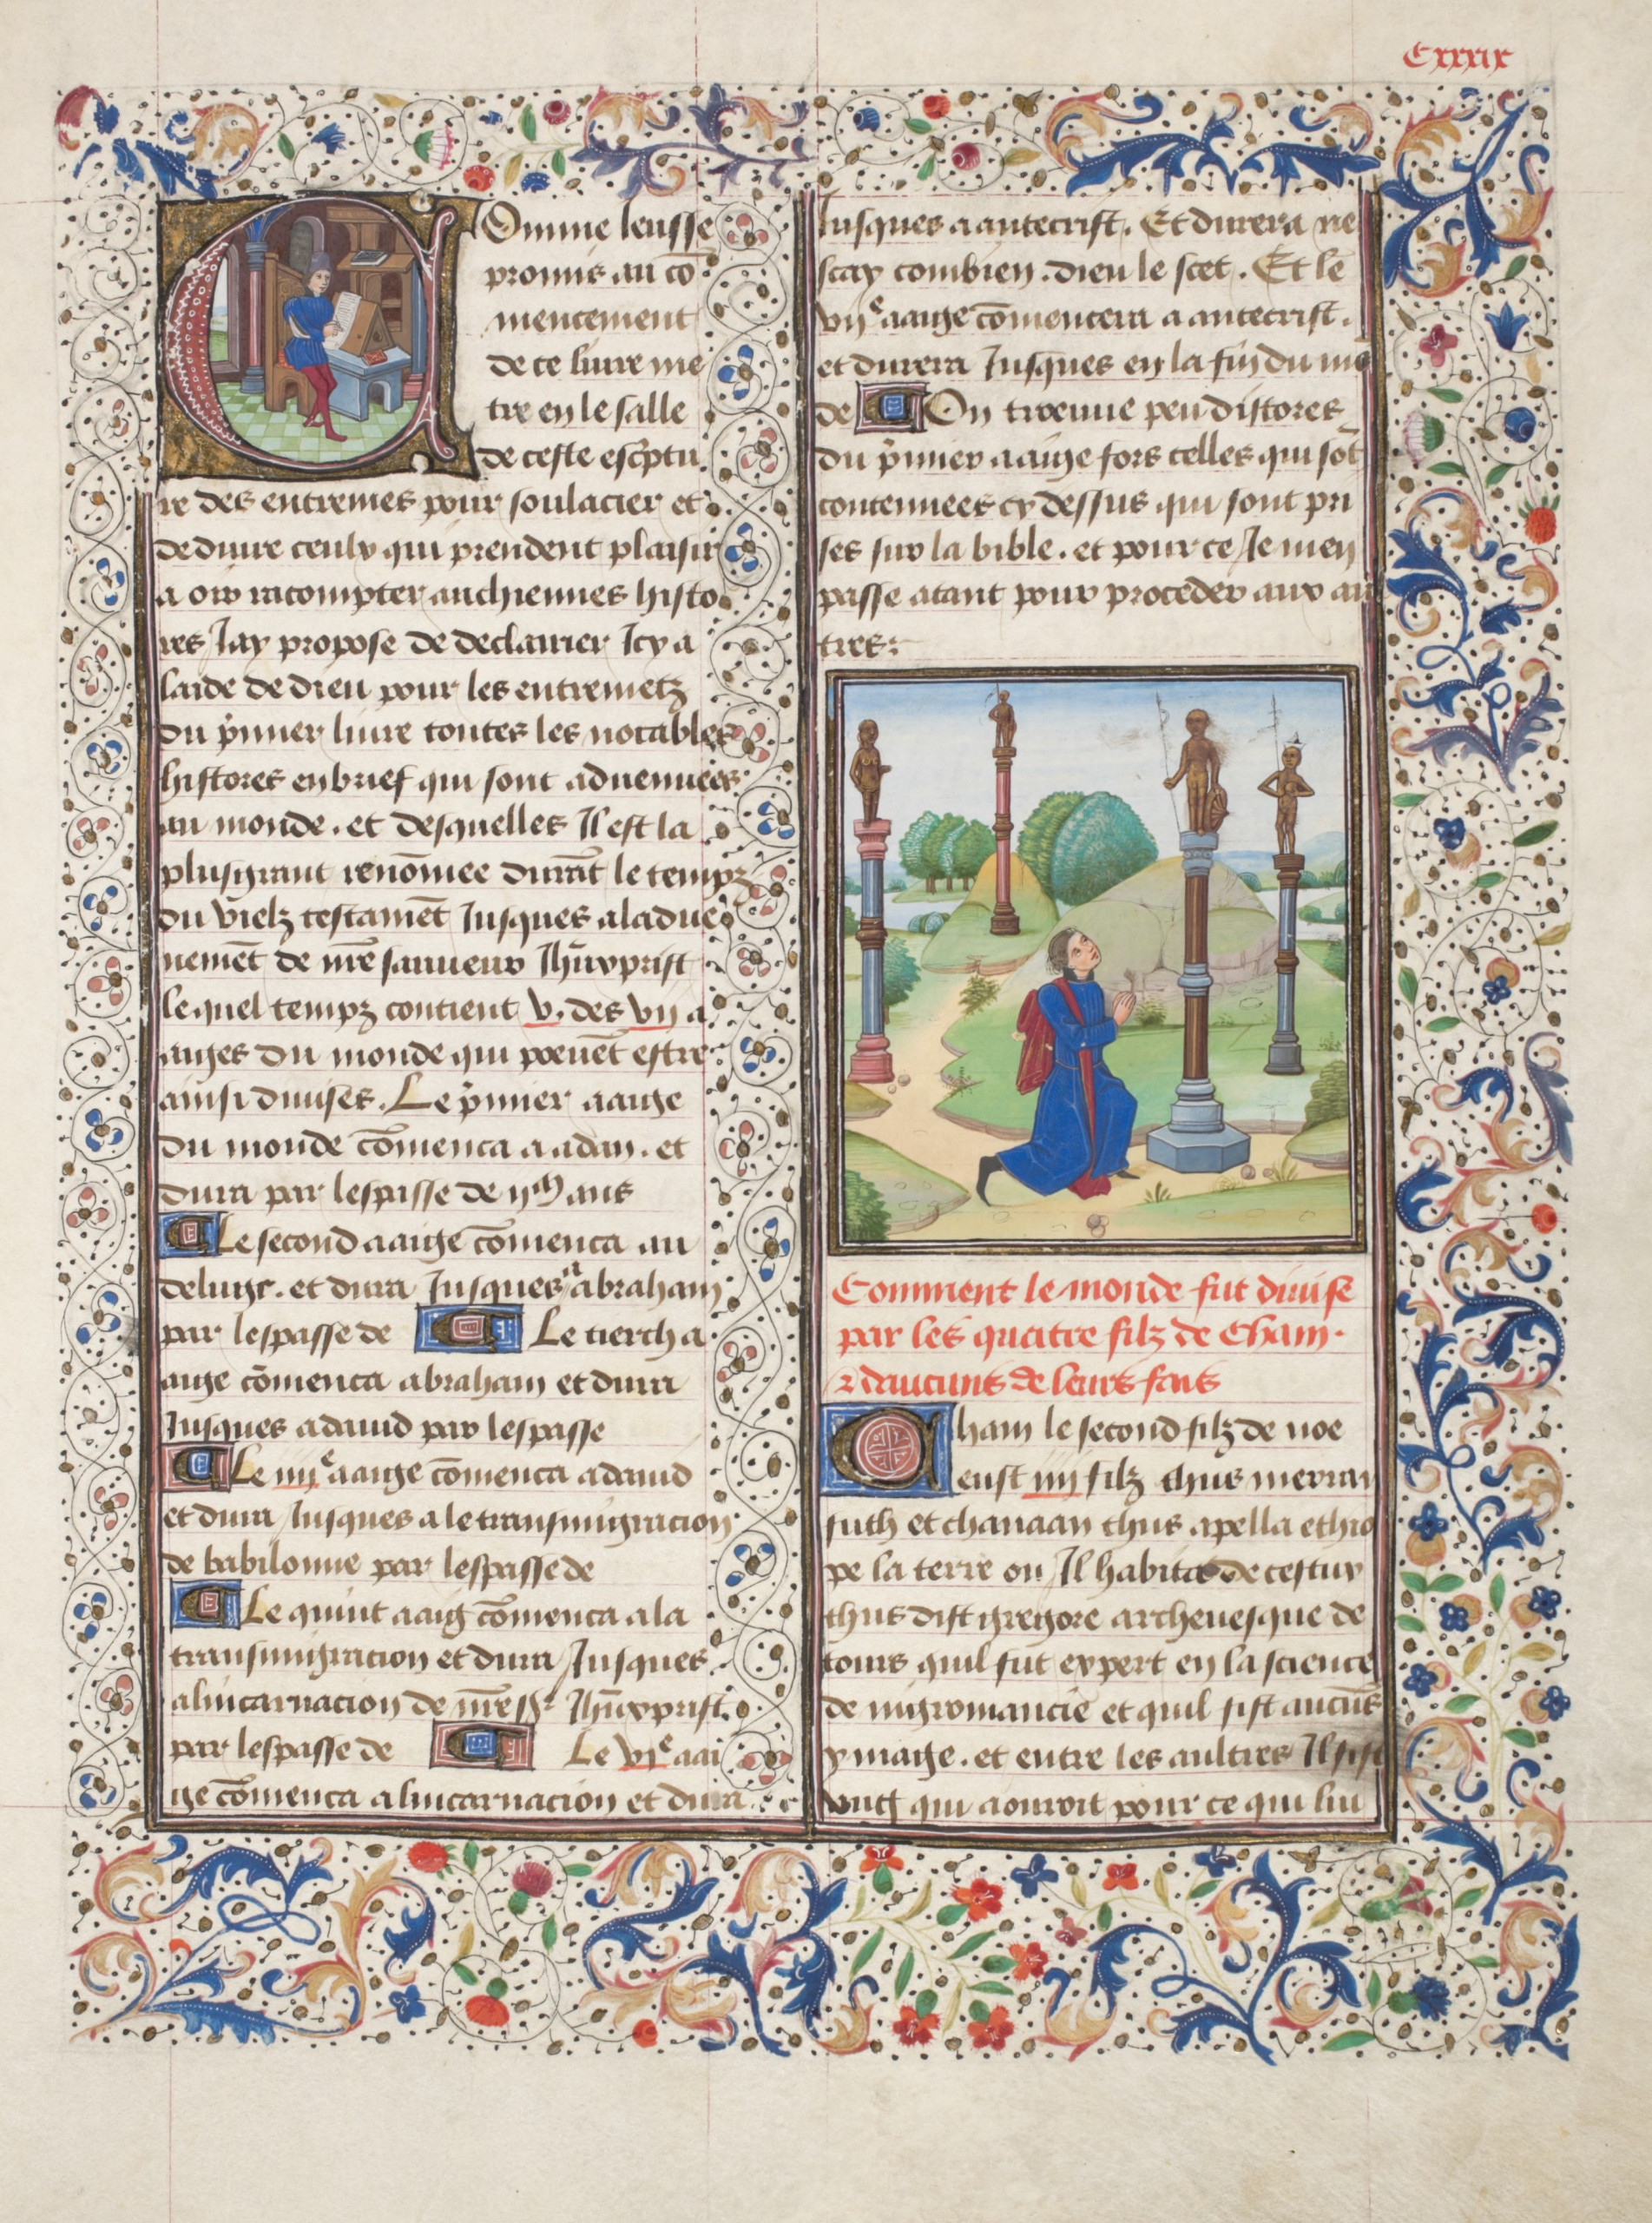 Cxxxix
Comme ieusse
promis au cō
mencement
de ce liure me
tre en le salle
de ceste esc̃ptu
re des entremes pour soulacier et
deduire ceulx qui prendent plaisir
a oir racompter anchiennes histo
res Jay propose de declairier Icy a
laide de dieu pour les entremetz
du p̃mier liure toutes les notables
histores en brief qui sont aduenuees
au monde . et desquelles Il est la
plus grant renōmee durāt le tempz
du vielz testamēt Jusques a ladue
nemēt de nr̄e sauueur Jhūxprist
le quel tempz contient v. des vij a
aiges du monde qui poeuēt estre
ainsi diuises . Le p̃mier aaige
du monde cōmenca a adan . et
dura par lespasse de ijᵐ ans
Le second aaige cōmenca au
deluge . et dura Jusques a abraham
par lespasse de Le tierch a
aige cōmenca abraham et dura
Jusques a dauid par lespasse
Le iiijᵉ aaige cōmenca a dauid
et dura Jusques a le transmigracion
de babilonne par lespasse de
Le quint aaig cōmenca a la
transmigracion et dura Jusques
a lincarnacion de nr̄e sʳ Jhūxprist
par lespasse de Le vjᵉ aai
ge cōmenca a lincarnacion et dura
Jusques a antecrist . Et durera ne
scay combien . dieu le scet . Et le
vijᵉ aaige cōmencera a antecrist .
et durera Jusques en la fin du mō
de On troeuue peu distores
du p̃mier aaige fors celles qui sōt
contenuees cy dessus qui sont pri
ses sur la bible . et pour ce Je men
passe atant pour proceder aux au
tres :
Comment le monde fut diuise
par les quatre filz de Cham .
⁊ daucuns de leurs fais
Cham le second filz de noe
eust iiij filz thus merran
futh et chanaan thus apella ethio
pe la terre ou Il habita de cestuy
thus dist gregore archeuesque de
tours quil fut expert en la science
de nigromancie et quil fist aucūs
ymaige . et entre les aultres Il fist
vng qui aouroit pour ce qui lui